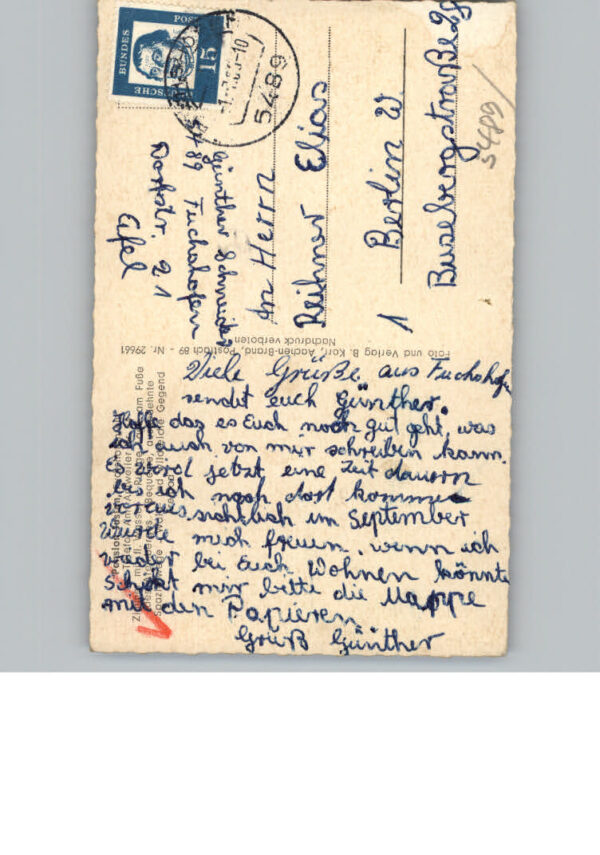 Viele Grüße aus Fuchshofen
sendet euch Günther.
Hoffe daz es Euch noch gut geht, was
ich auch von mir schreiben kann.
Es wird jetzt eine Zeit dauern
bis ich nach dort komme
voraussichtlich im September
Würde mich freuen, wenn ich
wieder bei Euch Wohnen könnte
Schickt mir bitte die Mappe
mit den Papieren
Gruß Günther
Foto und Verlag B. Korr, Aachen-Brand, Postfach 89 - Nr. 29661
Nachdruck verboten
Günther Schneider
5489 Fuchshofen
Dorfstr. 21
Eifel
An Herrn
Reihner Elias
1 Berlin W
Busebergstraße 29
5489
DEUTSCHE
BUNDES
POST
15
5489